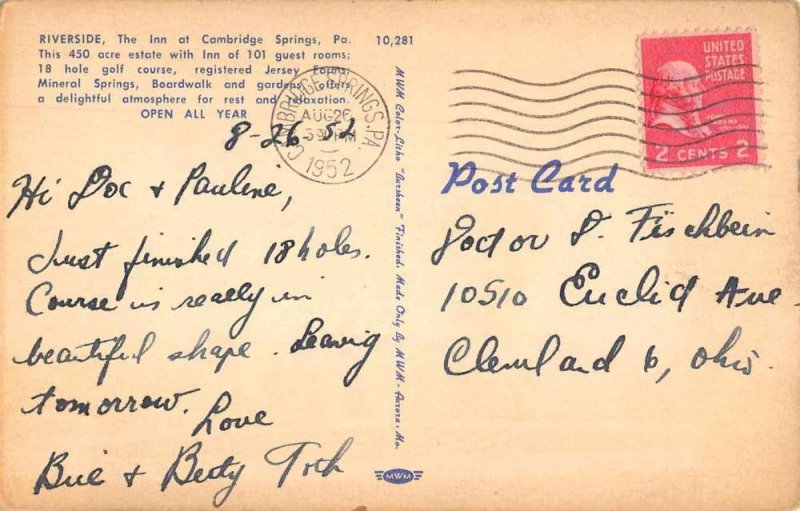 RIVERSIDE, The Inn at Cambridge Springs, Pa.
This 450 acre estate with Inn of 101 guest rooms;
18 hole golf course, registered Jersey Farm,
Mineral Springs, Boardwalk and gardens offers
a delightful atmosphere for rest and relaxation.
OPEN ALL YEAR
10,281
8-26 52
Hi Doc & Pauline,
Just finished 18 holes.
Course is really in
beautiful shape. Leavig
tomorrow. Love
Bill & Betty
MWM Color-Litho "Darsheen" Finished. Made Only By MWM - Aurora, Mo.
MWM
CAMBRIDGE SPRINGS, PA.
AUG 26
1952
UNITED
STATES
POSTAGE
JOHN ADAMS
2 CENTS 2
Post Card
Doctor D. Fischbein
10510 Euclid Ave
Cleveland 6, Ohio.